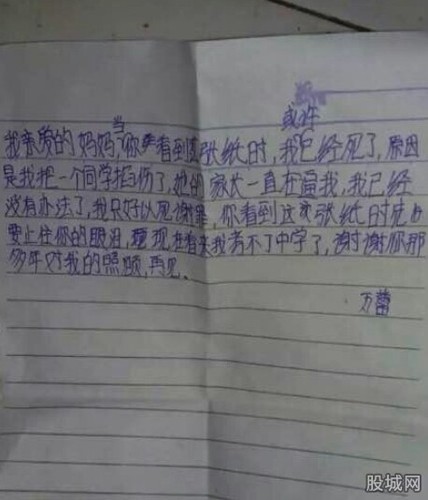 当 或许
我亲爱的妈妈,你看到这张纸时,我已经死了,原因
是我把一个同学掐伤了,她的家长一直在逼我,我已经
没有办法了,我只好以死谢罪,你看到这张纸时
要止住你的眼泪,现在看来我考不了中学了,谢谢你那
多年对我的照顾,再见。
万蕾
股城网